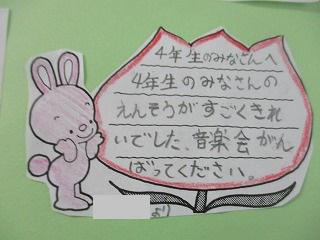 4年生のみなさんへ
4年生のみなさんの
えんそうがすごくきれ
いでした、音楽会がん
ばってください。
より